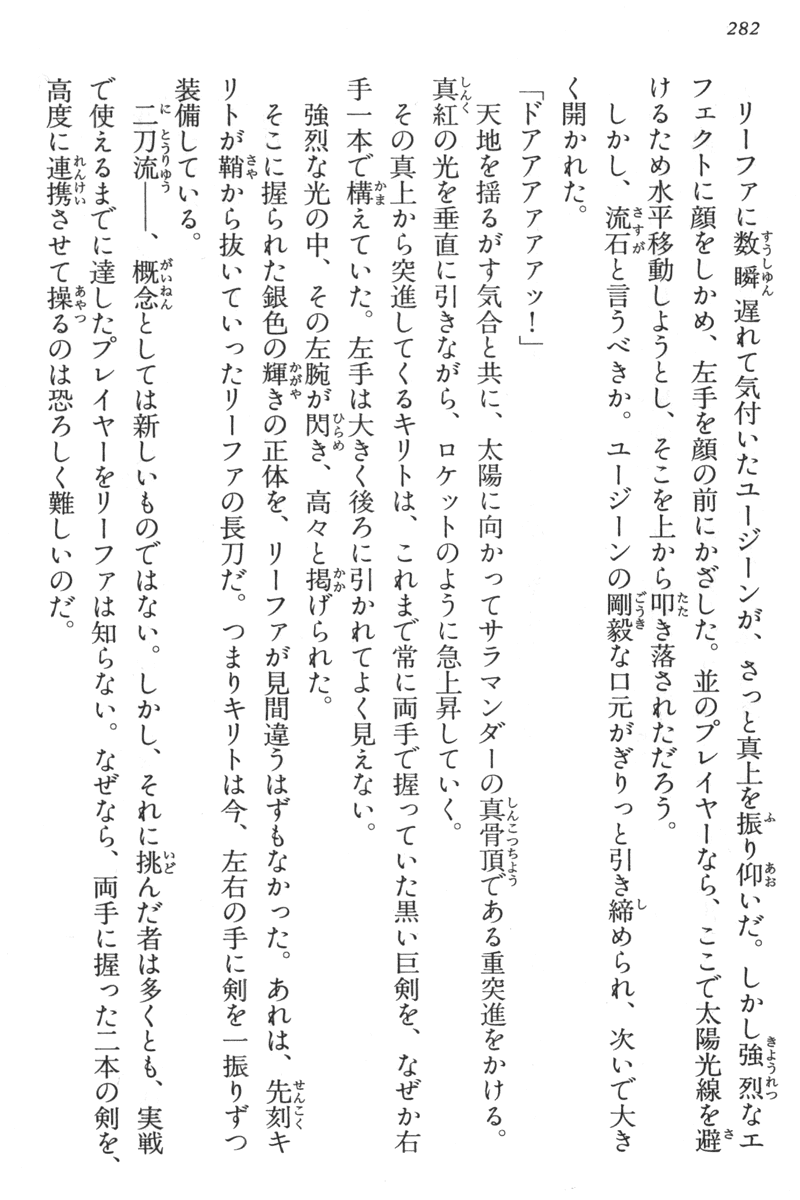 282
リーファに数瞬遅れて気付いたユージーンが、さっと真上を振り仰いだ。しかし強烈なエ
フェクトに顔をしかめ、左手を顔の前にかざした。並のプレイヤーなら、ここで太陽光線を避
けるため水平移動しようとし、そこを上から叩き落されただろう。
しかし、流石と言うべきか。ユージーンの剛毅な口元がぎりっと引き締められ、次いで大き
く開かれた。
「ドアアアアアッ！」
天地を揺るがす気合と共に、太陽に向かってサラマンダーの真骨頂である重突進をかける。
真紅の光を垂直に引きながら、ロケットのように急上昇していく。
その真上から突進してくるキリトは、これまで常に両手で握っていた黒い巨剣を、なぜか右
手一本で構えていた。左手は大きく後ろに引かれてよく見えない。
強烈な光の中、その左腕が閃き、高々と掲げられた。
そこに握られた銀色の輝きの正体を、リーファが見間違うはずもなかった。あれは、先刻キ
リトが鞘から抜いていったリーファの長刀だ。つまりキリトは今、左右の手に剣を一振りずつ
装備している。
二刀流――、概念としては新しいものではない。しかし、それに挑んだ者は多くとも、実戦
で使えるまでに達したプレイヤーをリーファは知らない。なぜなら、両手に握った二本の剣を、
高度に連携させて操るのは恐ろしく難しいのだ。